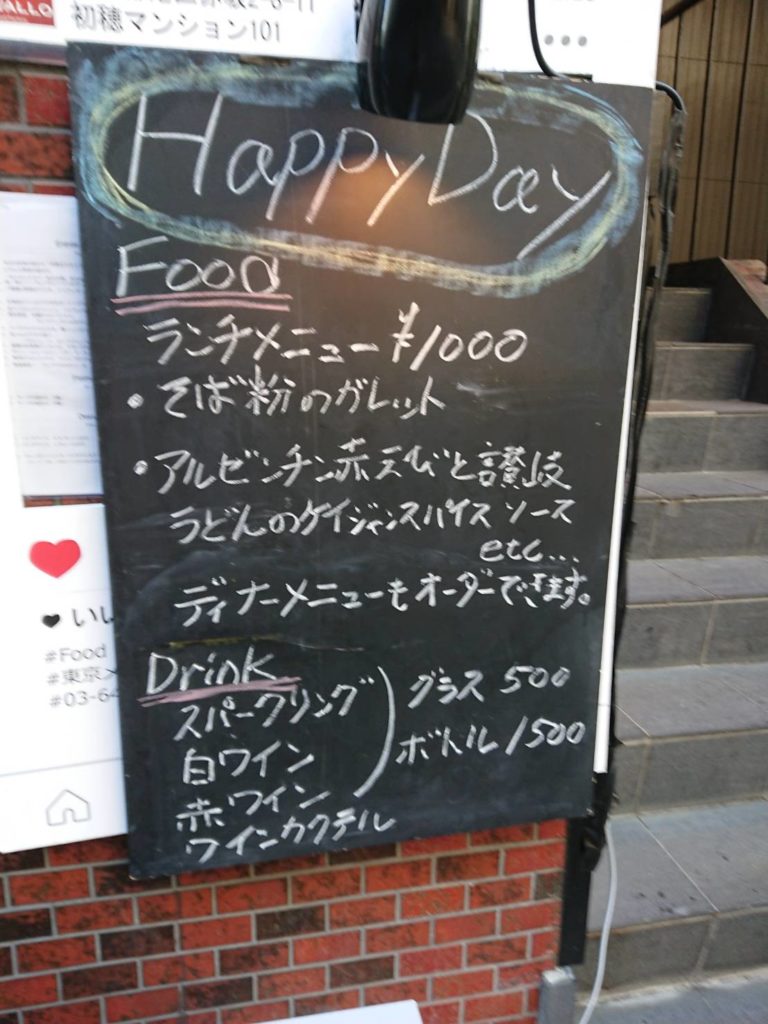 初穂マンション101
Happy Day
Food
ランチメニュー ¥1000
・そば粉のガレット
・アルゼンチン赤えびと讃岐
うどんのケイジャンスパイスソース
etc...
ディナーメニューもオーダーできます。
Drink
スパークリング
白ワイン
赤ワイン
ワインカクテル
グラス 500
ボトル 1500
#Food